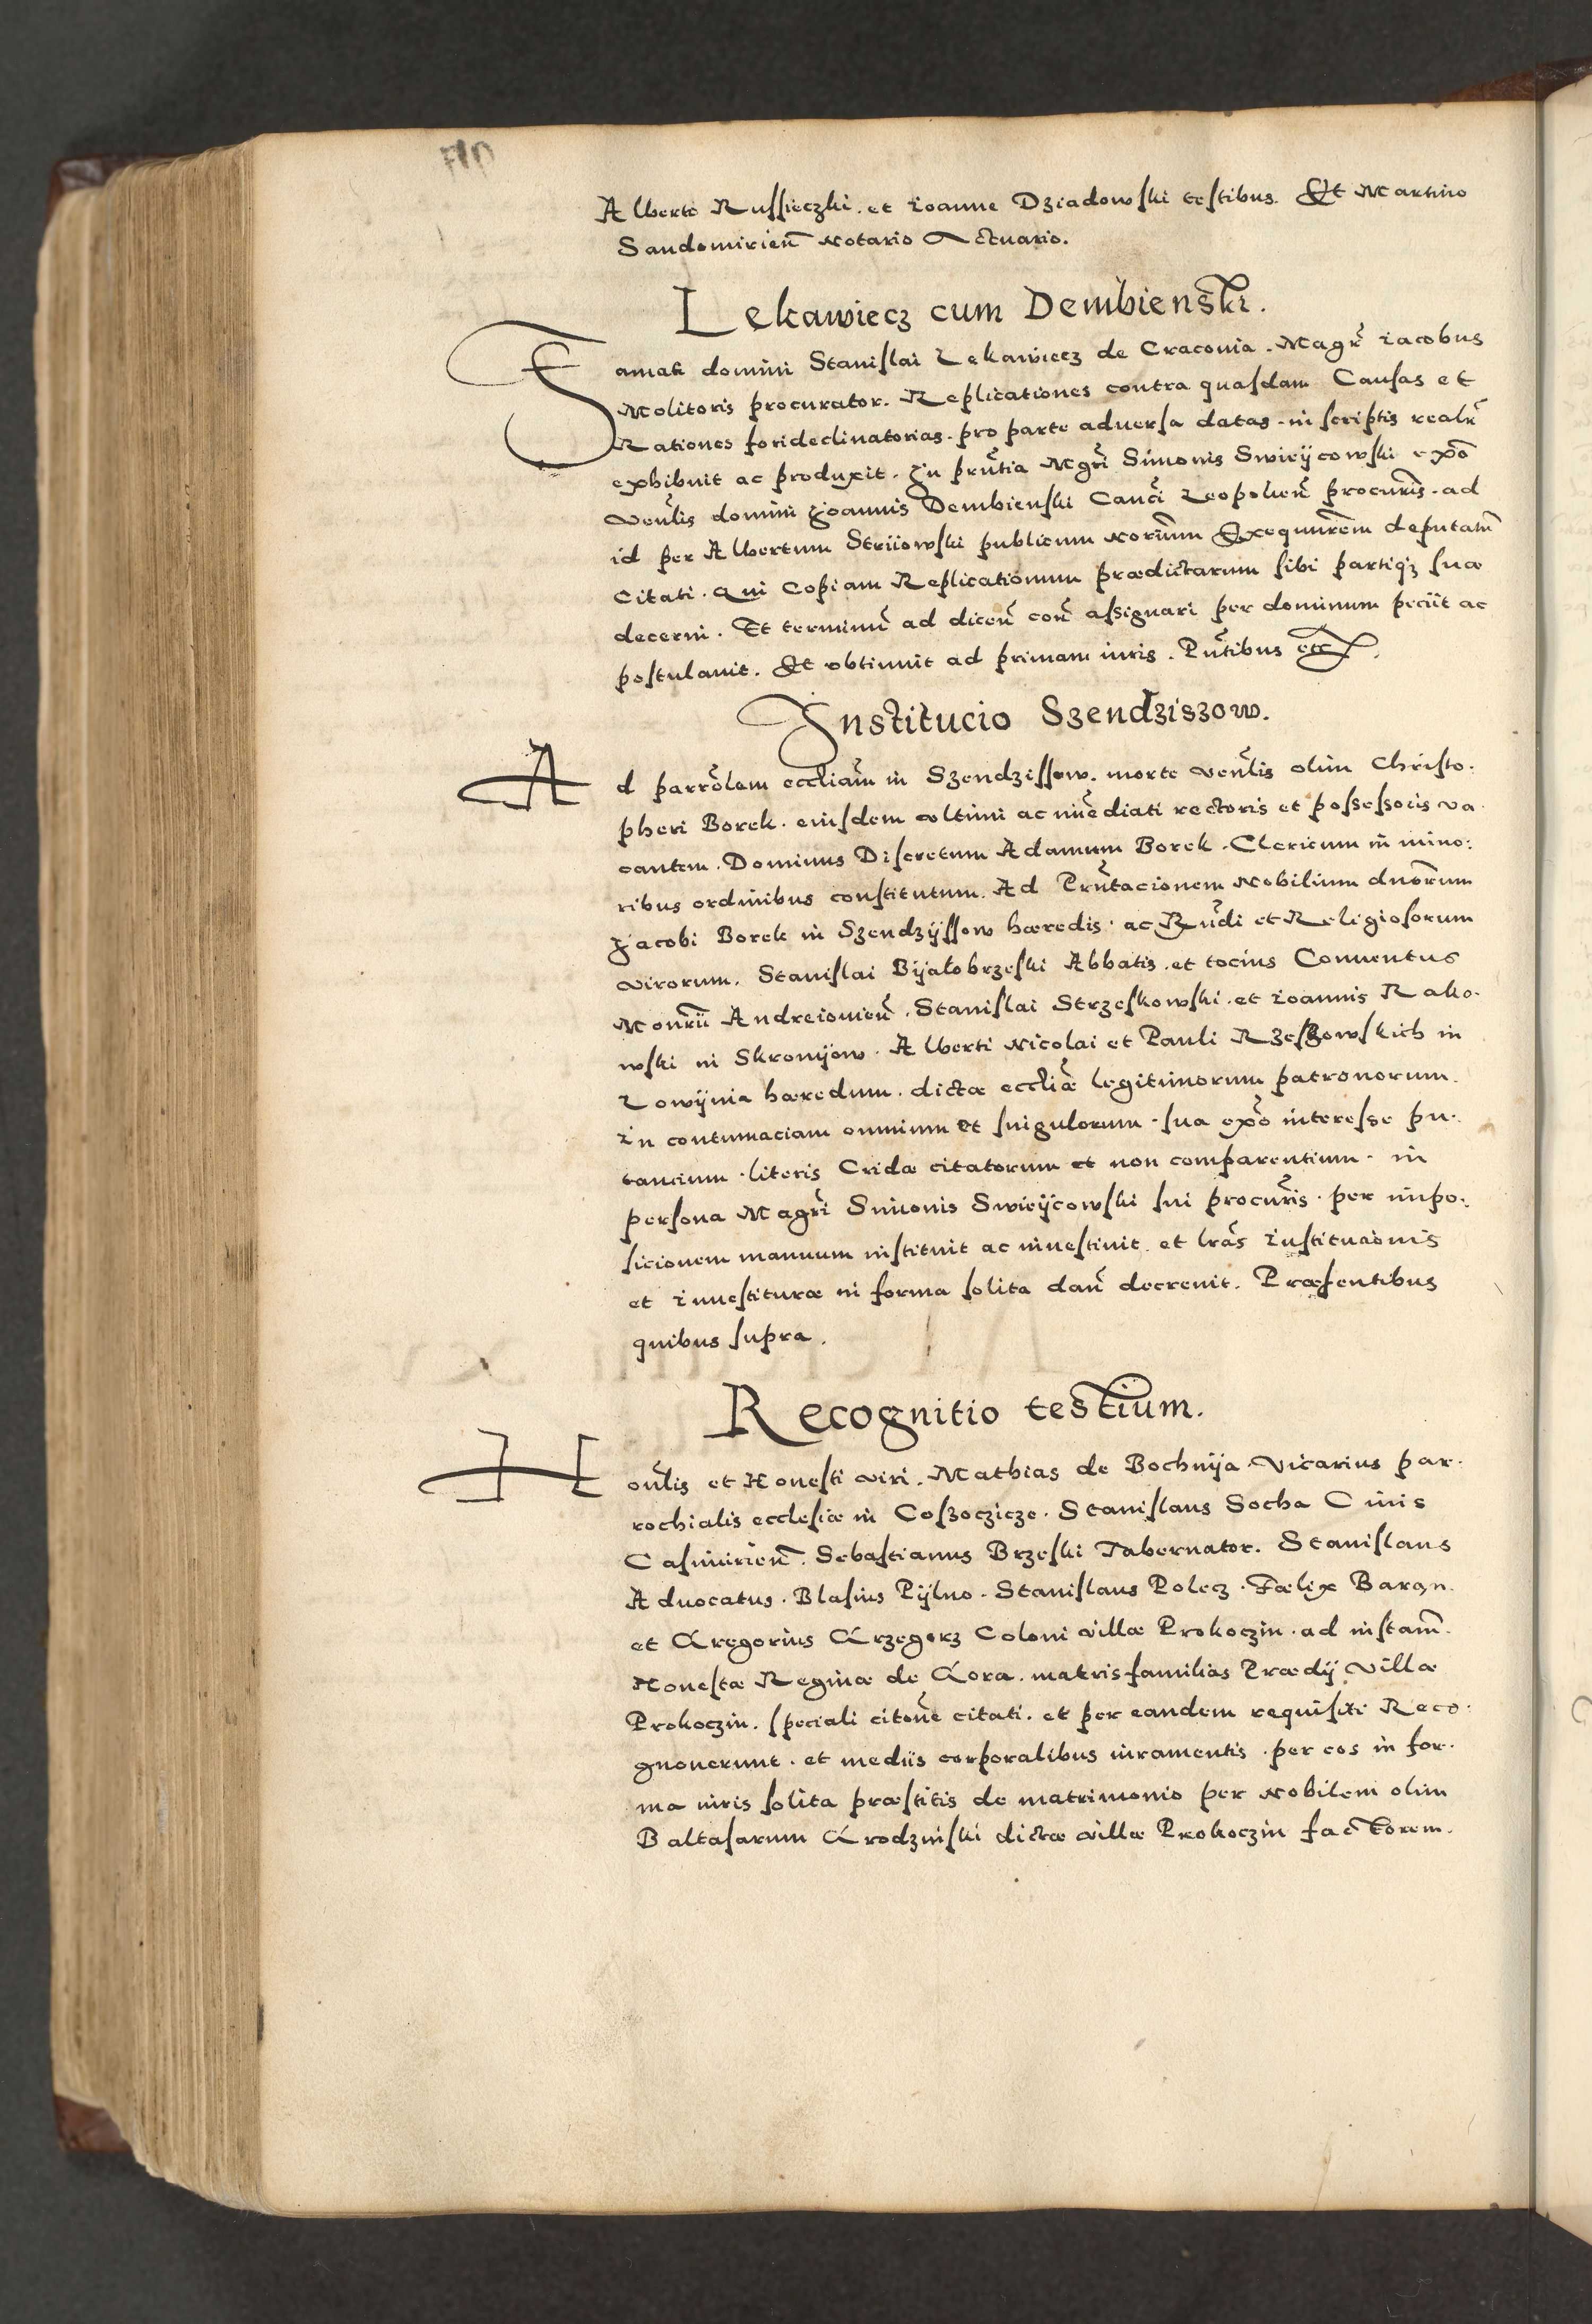 Alberto Russieczki. et Ioanne Dziadowski testibus. Et Martino
Sandomirien̄ Notario Actuario.
Lekawiecz cum Dembienski.
Famati domini Stanislai Lekawiecz de Cracouia. Magr̄ Iacobus
Molitoris procurator. Replicationes contra quasdam Causas et
Rationes forideclinatorias. pro parte aduersa datas. in scriptis realr̄
exhibuit ac produxit. In pn̄tia Mgr̄i Simonis Swieÿcowski exp̄o
Ven̄lis domini Joannis Dembienski Can̄ci Leopolien̄ procur̄is. ad
id per Albertum Striiowski publicum Nor̄ium Exequut̄rem deputatum̄
citati. Qui Copiam Replicationum prædictarum sibi partiqꝫ suæ
decerni. Et terminum̄ ad dicen̄ con̄ assignari per dominum peciit ac
postulauit. Et obtinuit ad primam iuris. Pn̄tibus etc.
Institucio Szendziszow.
Ad parro̅lem eccli̅am in Szendzissow. morte ven̄lis olim Christo.
pheri Borek. eiusdem vltimi ac im̄ediati rectoris et possessoris va.
cantem. Dominus Discretum Adamum Borek. Clericum in mino:
ribus ordinibus constitutum. Ad Pn̄tacionem Nobilium dnorum
Jacobi Borek in Szendzÿssow hæredis. ac Rn̄di et Religiosorum
virorum. Stanislai Bijalobrzeski Abbatis. et tocius Conuentus
Monr̄ii Andreiouien̄. Stanislai Strzeskowski. et Ioannis Rako.
wski in Skronijow. Alberti Nicolai et Pauli Rzeszowskich in
Lowijnia hæredum. dictæ eccli̅æ legitimorum patronorum.
In contumaciam omnium et singulorum. sua exp̄o interesse pu.
tancium. literis Cridæ citatorum et non comparentium. in
persona Magr̄i Simonis Swieÿcowski sui procur̄is. per impo:
sicionem manuum instituit ac inuestiuit. et lrās Institucionis
et Inuestituræ in forma solita dan̄ decreuit. Præsentibus
quibus supra.
Recognitio testium.
Hon̄lis et Honesti viri. Mathias de Bochnija Vicarius par.
rochialis ecclesiæ in Coszoczicze. Stanislaus Socha Ciuis
Casimirien̄. Sebastianus Brzeski Tabernator. Stanislaus
Aduocatus. Blasius Pÿlno. Stanislaus Polecz. Fælix Baran.
et Gregorius Grzegorz Coloni villæ Prokoczin. ad instam̄.
Honestæ Reginæ de Gora. matrisfamilias Prædij villæ
Prokoczin. speciali cito̅ne citati. et per eandem requisiti Reco.
gnouerunt. et mediis corporalibus iuramentis. per eos in for.
ma iuris solita præstitis de matrimonio per Nobilem olim
Baltasarum Grodzinski dictæ villæ Prokoczin factorem.